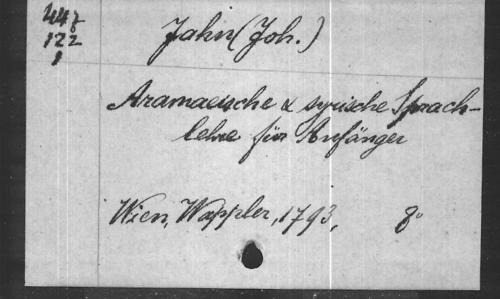 447
122
1
Jahn (Joh.)
Aramaeische & syrische Sprach-
lehre für Anfänger
Wien, Wappler, 1793, 8°